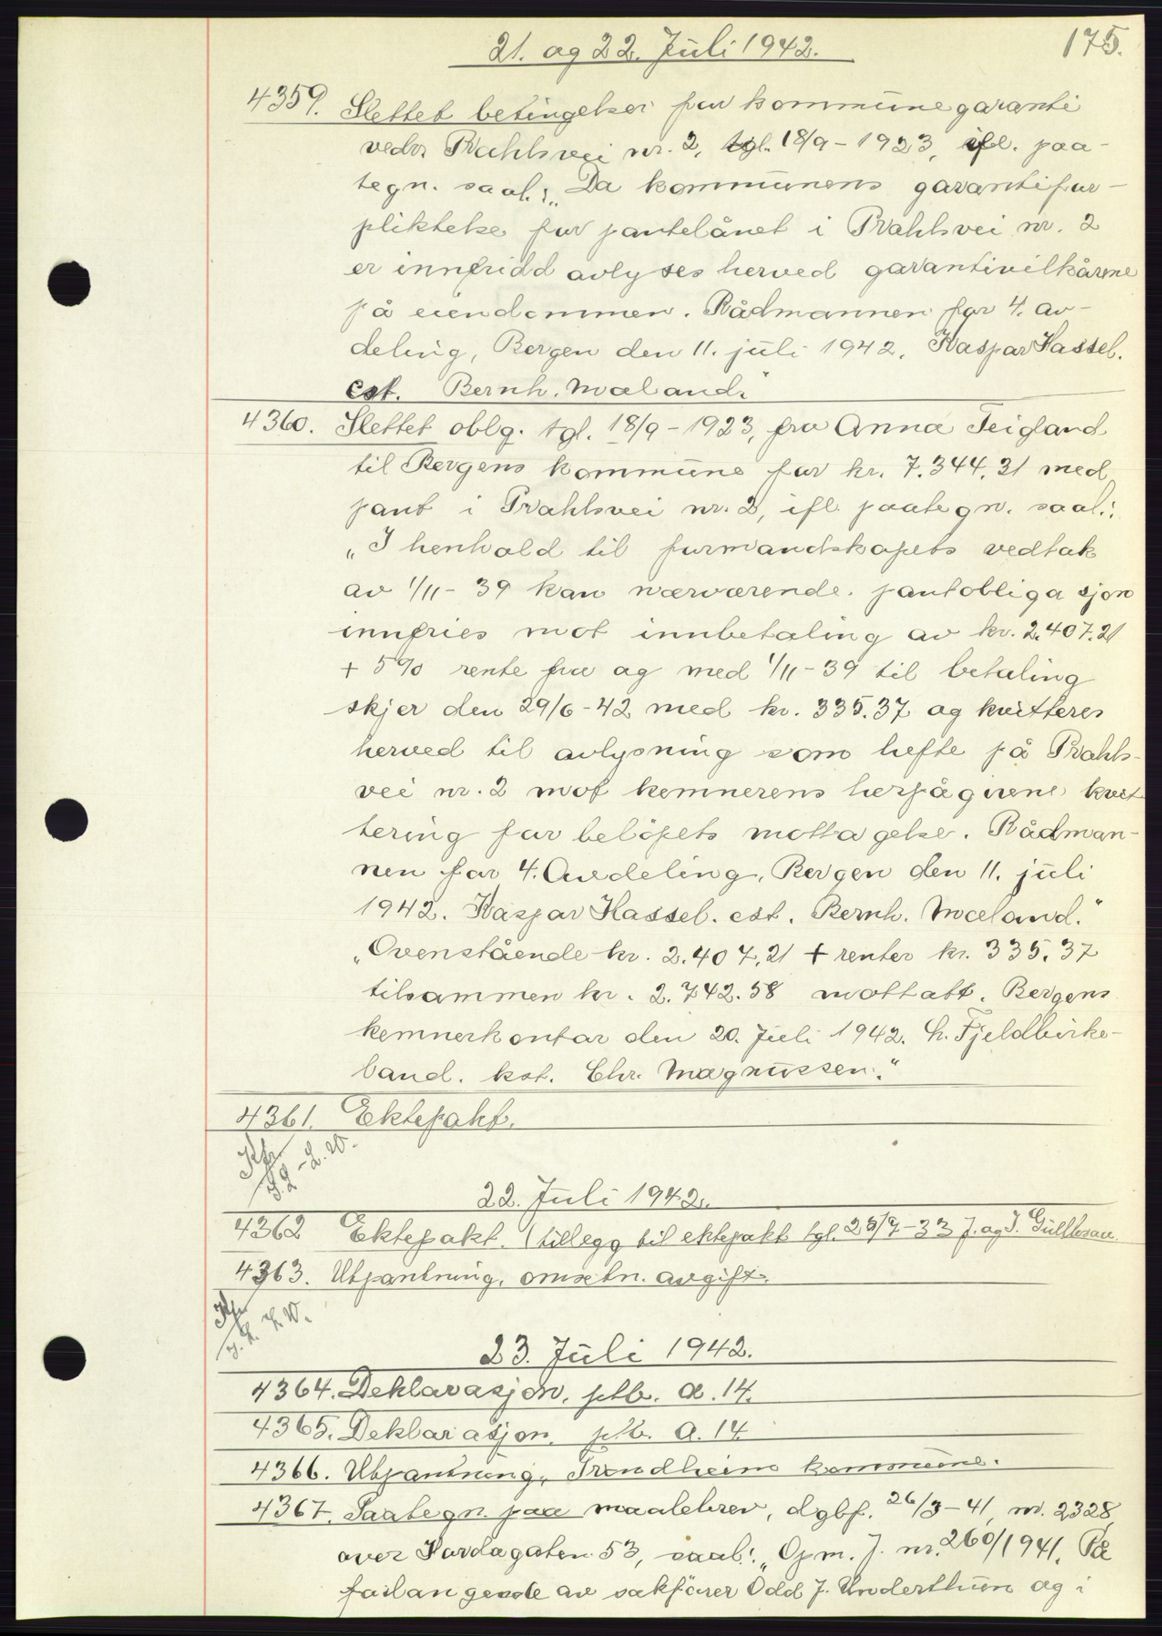 21. og 22. Juli 1942.
175.
4359. Slettet betingelser for kommunegaranti
vedr. Prahlsvei nr. 2, tgl. 18/9-1923, ifl. paa-
tegn. saal.: „Da kommunens garantifor-
pliktelse for pantelånet i Prahlsvei nr. 2
er innfridd avlyses herved garantivilkårene
på eiendommen. Rådmannen for 4. av-
deling, Bergen den 11. juli 1942. Kaspar Hassel.
cst. Bernh. Mæland."
4360. Slettet oblg. tgl. 18/9-1923, fra Anna Teigland
til Bergens kommune for kr. 7.344,31 med
pant i Prahlsvei nr. 2, ifl. paategn. saal.:
„I henhold til formandskapets vedtak
av 1/11-39 kan nærværende pantobligasjon
innfries mot innbetaling av kr. 2.407.21
+ 5% rente fra og med 1/11-39 til betaling
skjer den 29/6-42 med kr. 335.37 og kvitteres
herved til avlysning som hefte på Prahls-
vei nr. 2 mot kemnerens herpå givene kvit
tering for beløpets mottagelse. Rådman-
nen for 4. Avdeling, Bergen den 11. juli
1942. Kaspar Hassel. cst. Bernh. Mæland."
„Ovenstående kr. 2.407,21 + renter kr. 335,37
tilsammen kr. 2.742.58 mottatt. Bergens
kemnerkontor den 20. Juli 1942. h. Fjeldbirke-
land. kst. Chr. Magnussen."
4361. Ektepakt.
22. Juli 1942.
4362 Ektepakt. (tillegg til ektepakt tgl. 25/9-33 J. og I. Gullbraa
4363. Utpantning, omsetn. avgift.
23. Juli 1942.
4364. Deklarasjon. ptb. a. 14.
4365. Deklarasjon. ptb. a. 14
4366. Utpantning, Trondheim kommune.
4367. Paategn. paa maalebrev, dgbf. 26/3-41, nr. 2328,
over Hordagaten 53, saal.: „Opm. J. nr. 260/1941. På
forlangende av sakfører Odd J. Underthun og i